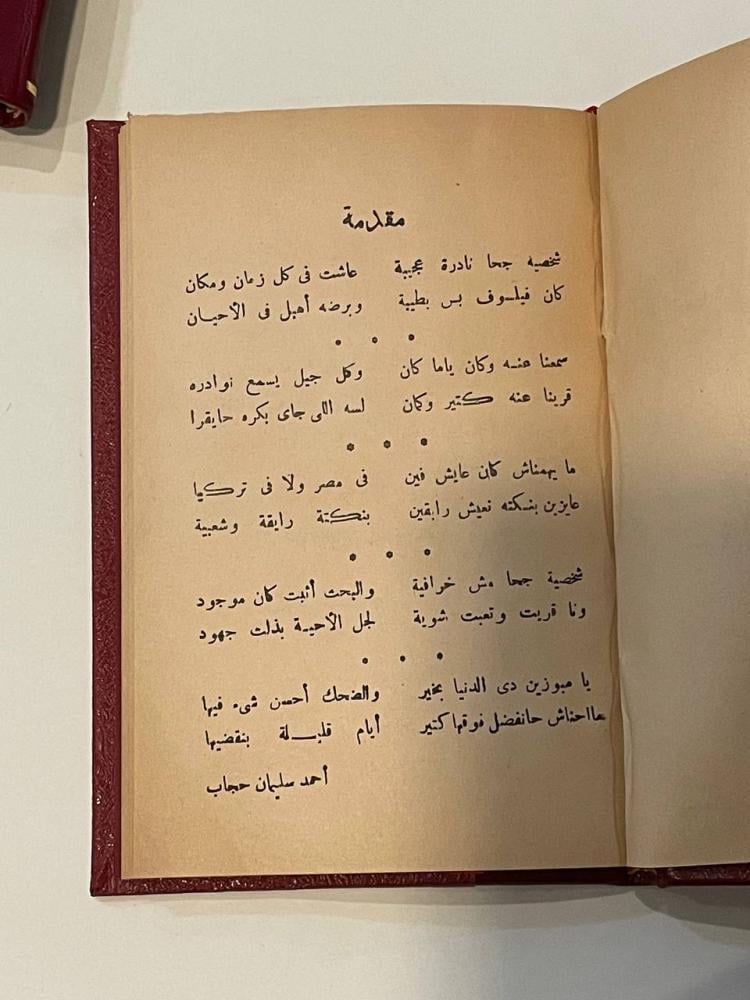 مقدمة
شخصيه جحا نادرة عجيبة عاشت فى كل زمان ومكان
كان فيلسوف بس بطيبة وبرضه أهبل فى الأحيان
* * *
سمعنا عنه وكان ياما كان وكل جيل يسمع نوادره
قرينا عنه كتير وكان لسه اللى جاى بكره حايقرا
* * *
ما يهمناش كان عايش فين فى مصر ولا فى تركيا
عايزين بنكته نعيش رايقين بنكتة رايقة وشعبية
* * *
شخصية جحا مش خرافية والبحث أثبت كان موجود
ونا قريت وتعبت شوية لجل الأحبة بذلت جهود
* * *
يا مبوزين دى الدنيا بخير والضحك أحسن شىء فيها
مااحناش حانفضل فوقها كتير أيام قليلة بنقضيها
أحمد سليمان حجاب